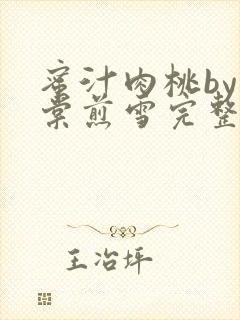 蜜汁肉桃by
棠煎雪完整
王治坪